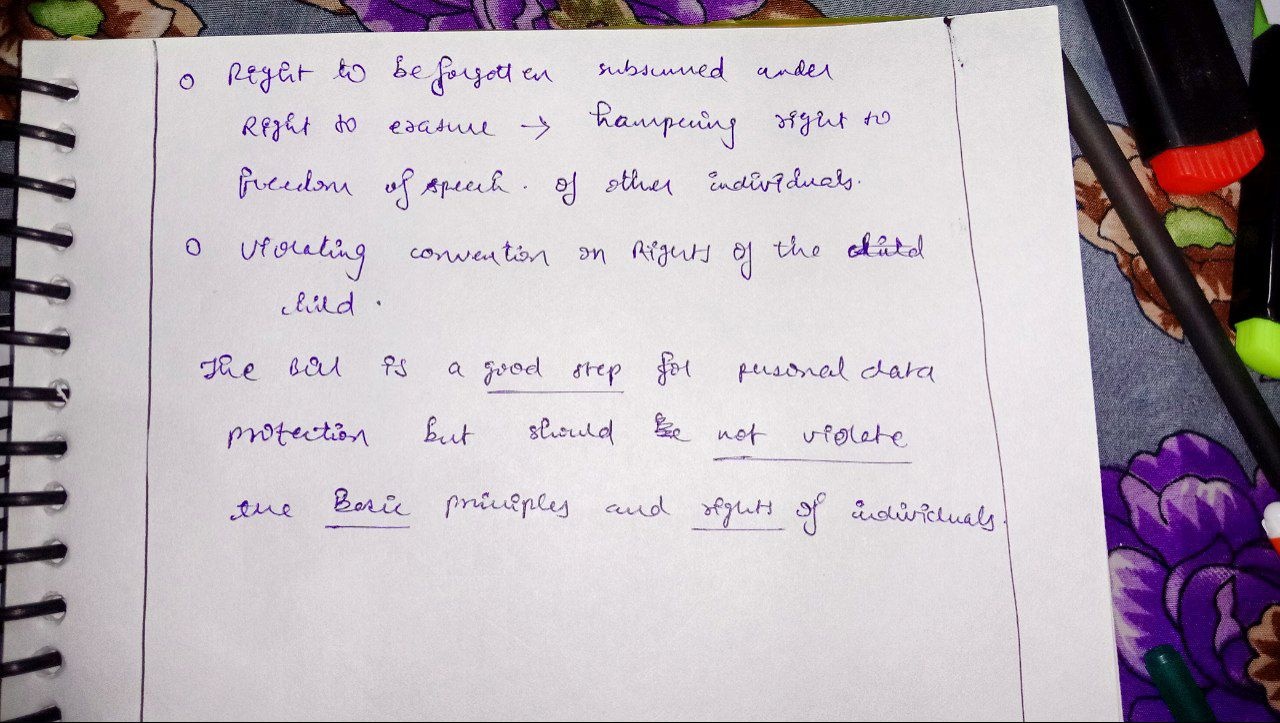 o Right to be forgotten subsumed under
Right to erasure → hampering right to
freedom of speech. of other individuals.
o Violating convention on Rights of the child
child.
The Bill is a good step for personal data
protection but should be not violate
the Basic principles and rights of individuals.